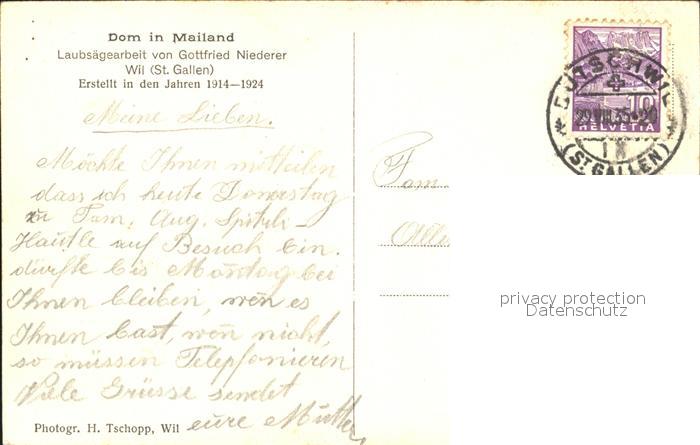 Dom in Mailand
Laubsägearbeit von Gottfried Niederer
Wil (St. Gallen)
Erstellt in den Jahren 1914—1924
Meine Lieben.
Möchte Ihnen mitteilen
dass ich heute Donerstag
zu Fam. Aug. Spitzli-
Hautle auf Besuch bin.
dürfte bis Montag bei
Ihnen bleiben, wen es
Ihnen bast, wen nicht,
so müssen Telepfonieren
Viele Grüsse sendet
eure Mutter
Photogr. H. Tschopp, Wil
Fam
BÜTSCHWIL
29.VIII.35-20
(ST GALLEN)
10
HELVETIA
privacy protection
Datenschutz